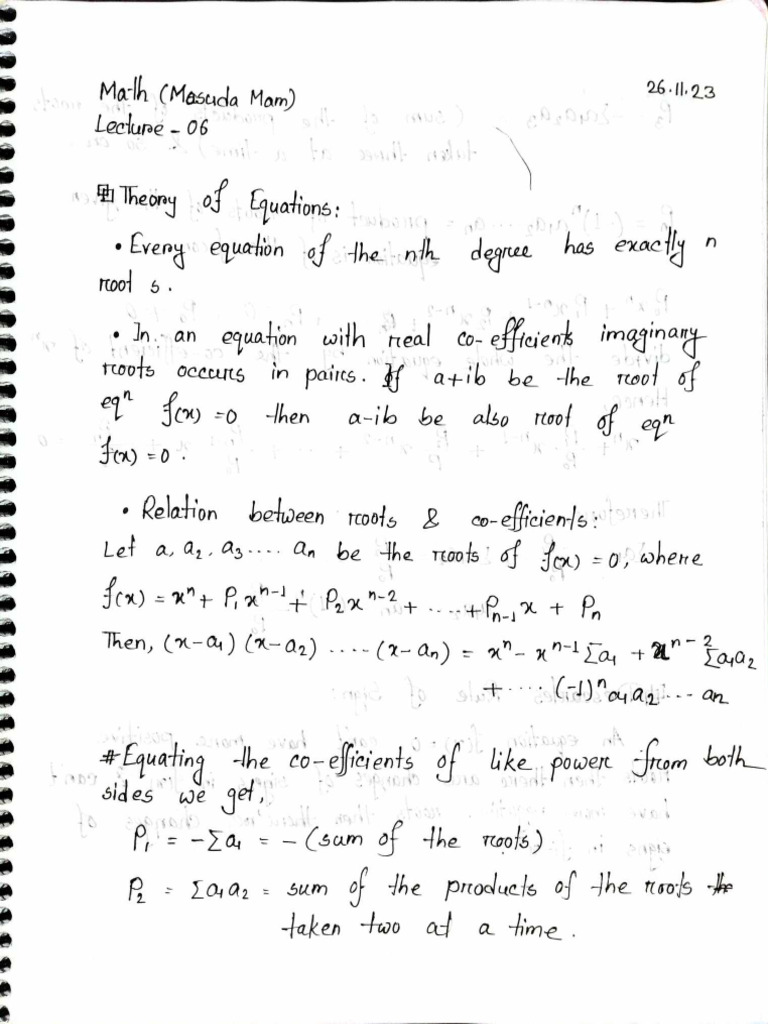 Math (Masuda Mam)
26.11.23
Lecture - 06
Theory of Equations:
• Every equation of the nth degree has exactly n
root s.
• In an equation with real co-efficients imaginary
roots occurs in pairs. If a+ib be the root of
eqⁿ f(x) = 0 then a-ib be also root of eqⁿ
f(x) = 0.
• Relation between roots & co-efficients:
Let a, a₂, a₃ .... aₙ be the roots of f(x) = 0, where
f(x) = xⁿ + P₁xⁿ⁻¹ + P₂xⁿ⁻² + ..... + Pₙ₋₁x + Pₙ
Then, (x-a₁) (x-a₂) ..... (x-aₙ) = xⁿ - xⁿ⁻¹ Σa₁ + xⁿ⁻² Σa₁a₂
+ .... (-1)ⁿ a₁a₂ ... an
# Equating the co-efficients of like power from both
sides we get,
P₁ = -Σa₁ = - (sum of the roots)
P₂ = Σa₁a₂ = sum of the products of the roots
taken two at a time.